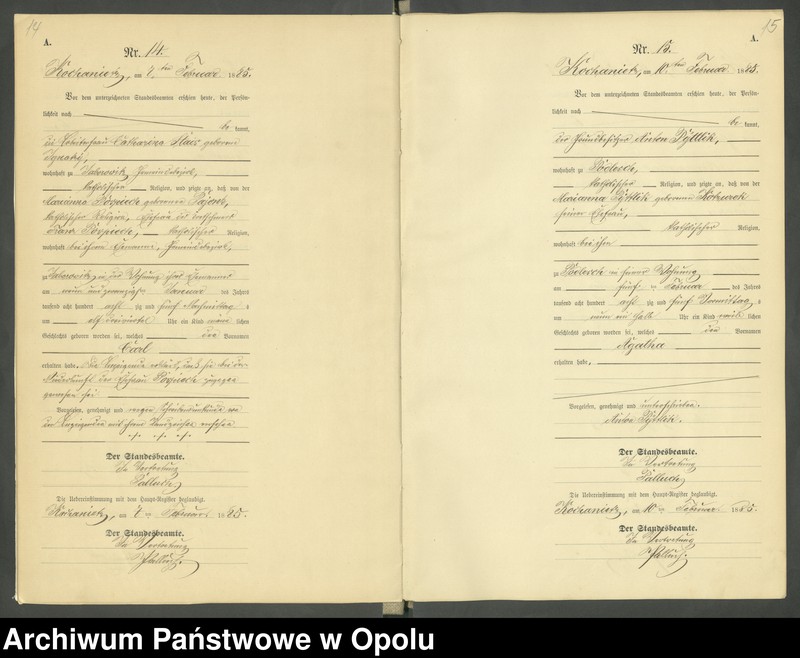 14
A.
Nr. 14.
Kochanietz, am 8 ten Februar 1885.
Vor dem unterzeichneten Standesbeamten erschien heute, der Persön-
lichkeit nach
be kannt,
die Catharina geborene
wohnhaft zu
katholischer Religion, und zeigte an, daß von der
Marianna geborenen
katholischer Religion,
katholischer Religion,
wohnhaft bei ihrem Ehemanne,
zu in der Wohnung ihres Ehemannes
am neun und zwanzigsten Januar des Jahres
tausend acht hundert acht zig und fünf Nachmittag s
um elf dreiviertel Uhr ein Kind männ lichen
Geschlechts geboren worden sei, welches den Vornamen
Carl
erhalten habe. Die Anzeigende erklärt, daß sie bei der
Niederkunft der Ehefrau zugegen
gewesen sei
Vorgelesen, genehmigt und wegen Schreibensunkunde von
der Anzeigenden mit ihrem Handzeichen versehen
+++
Der Standesbeamte.
In Vertretung
Palluch
Die Uebereinstimmung mit dem Haupt-Register beglaubigt.
Kochanietz, am 8 ten Februar 1885.
Der Standesbeamte.
In Vertretung
Palluch.
15
A.
Nr. 15.
Kochanietz, am 10 ten Februar 1885.
Vor dem unterzeichneten Standesbeamten erschien heute, der Persön-
lichkeit nach
be kannt,
der Grundbesitzer Anton Pyttlik,
wohnhaft zu
katholischer Religion, und zeigte an, daß von der
Marianna Pyttlik geborenen
seiner Ehefrau,
katholischer Religion,
wohnhaft bei ihm
zu in seiner Wohnung
am fünf ten Februar des Jahres
tausend acht hundert acht zig und fünf Vormittag s
um neun ein halb Uhr ein Kind weib lichen
Geschlechts geboren worden sei, welches den Vornamen
Agatha
erhalten habe.
Vorgelesen, genehmigt und unterschrieben.
Anton Pyttlik.
Der Standesbeamte.
In Vertretung
Palluch
Die Uebereinstimmung mit dem Haupt-Register beglaubigt.
Kochanietz, am 10 ten Februar 1885.
Der Standesbeamte.
In Vertretung
Palluch.
Archiwum Państwowe w Opolu